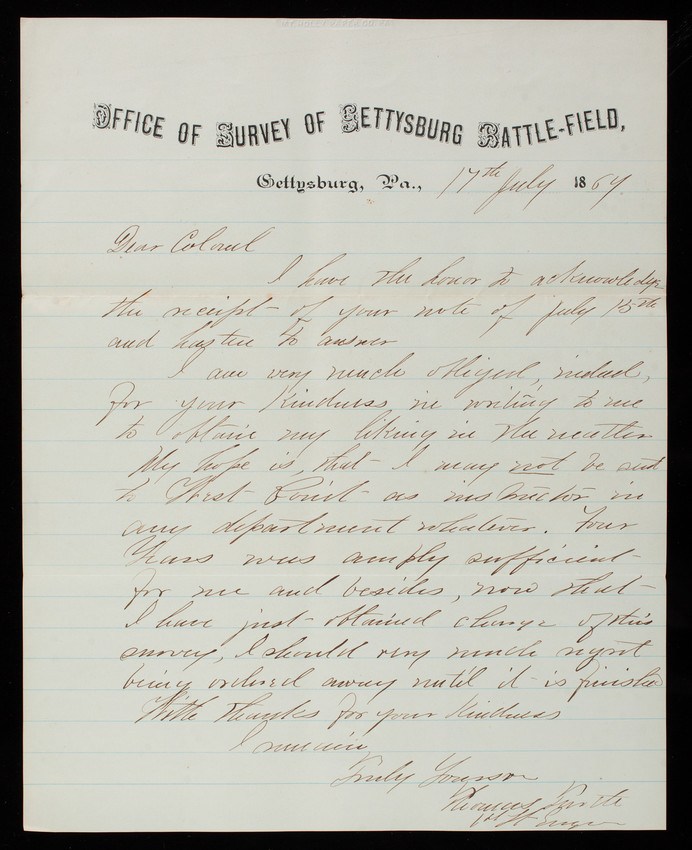 OFFICE OF SURVEY OF GETTYSBURG BATTLE-FIELD,
Gettysburg, Pa., 17th July 1869
Dear Colonel
I have the honor to acknowledge
the receipt of your note of July 15th
and hasten to answer
I am very much obliged, indeed,
for your kindness in writing to me
to obtain my liking in the matter
My hope is, that I may not be sent
to West Point as instructor in
any department whatever. Four
Years was amply sufficient
for me and besides, now that
I have just obtained charge of this
survey, I should very much regret
being ordered away until it is finished
With thanks for your kindness
I remain
Truly Yours
Thomas Turtle
1st Lt Engrs